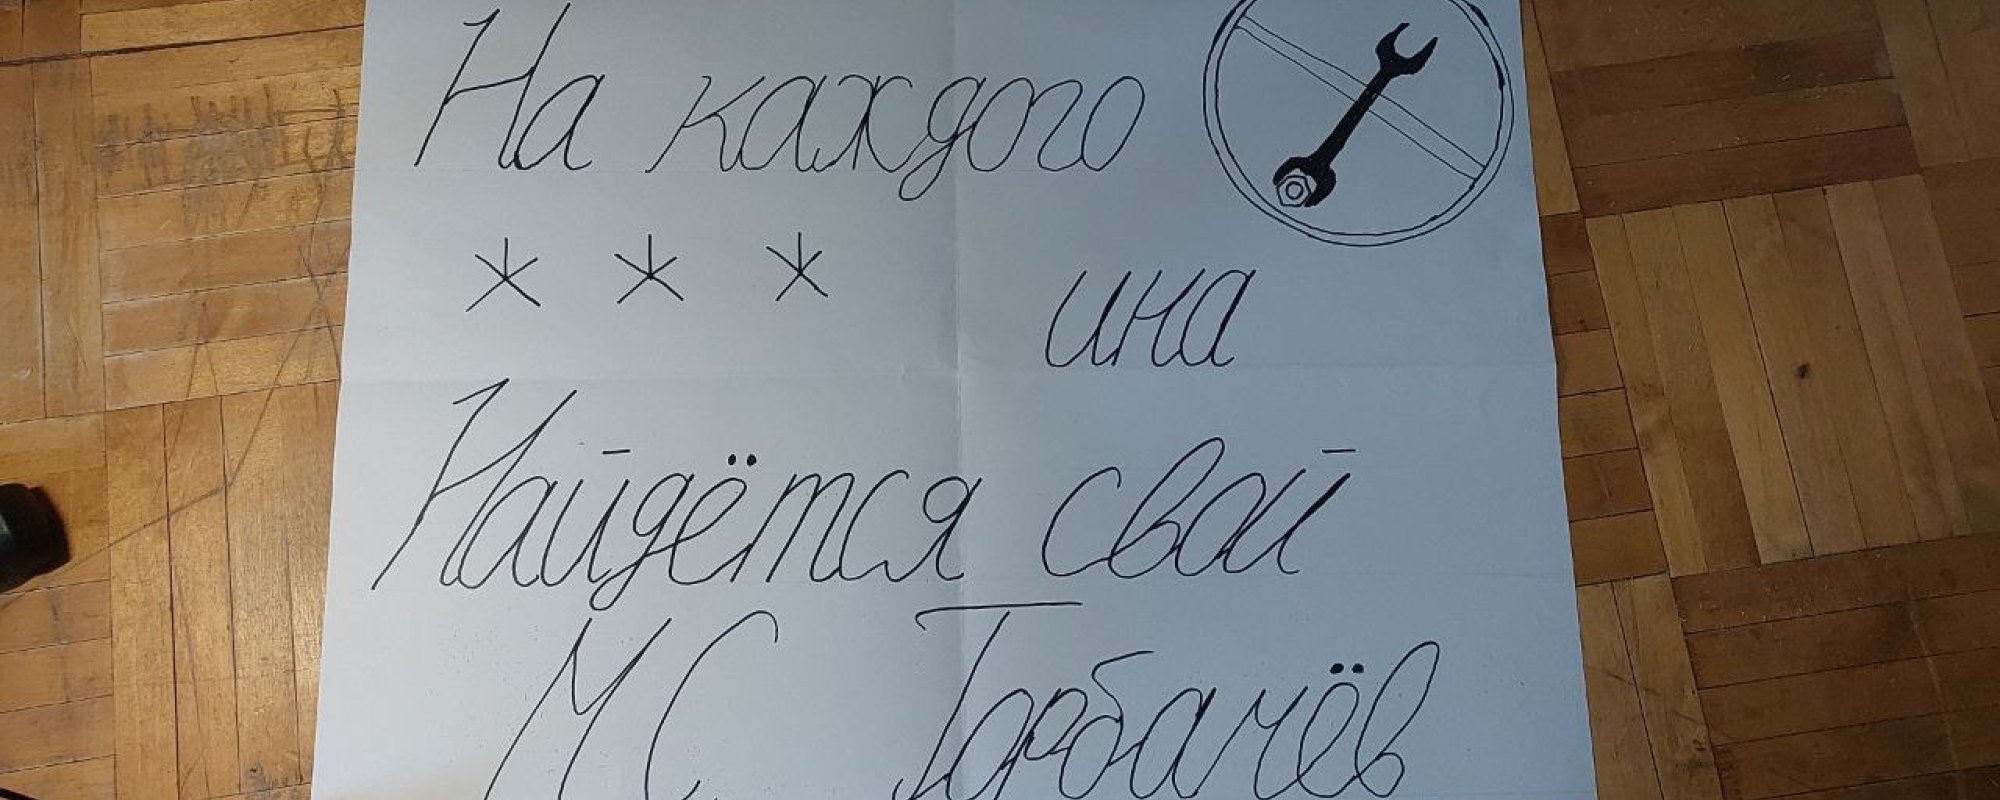 На каждого
* * * ина
Найдётся свой
М С Горбачёв